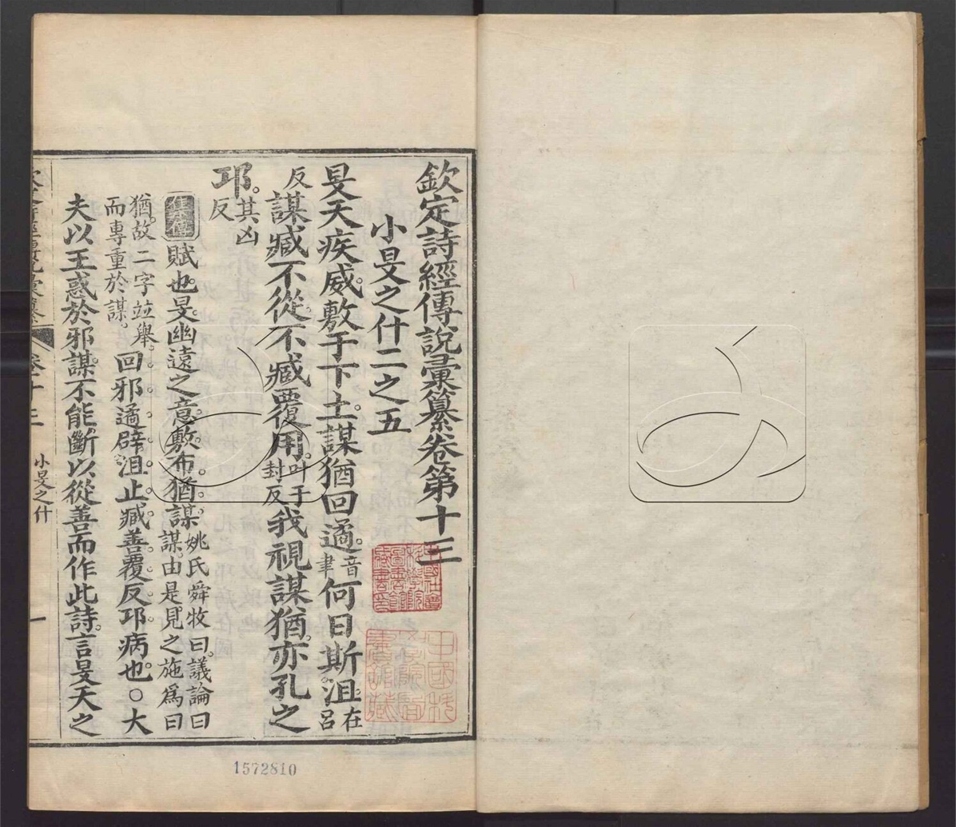 欽定詩經傳說彙纂卷第十三
小旻之什二之五
旻天疾威敷于下土謀猶回遹音聿何日斯沮在呂
反謀臧不從不臧覆用叶于封反我視謀猶亦孔之
邛其凶反
集傳賦也旻幽遠之意敷布猶謀姚氏舜牧曰議論曰謀由是見之施為曰
猶故二字竝舉而專重於謀回邪遹辟沮止臧善覆反邛病也○大
夫以王惑於邪謀不能斷以從善而作此詩言旻天之
卷十三
小旻之什
一
1572810